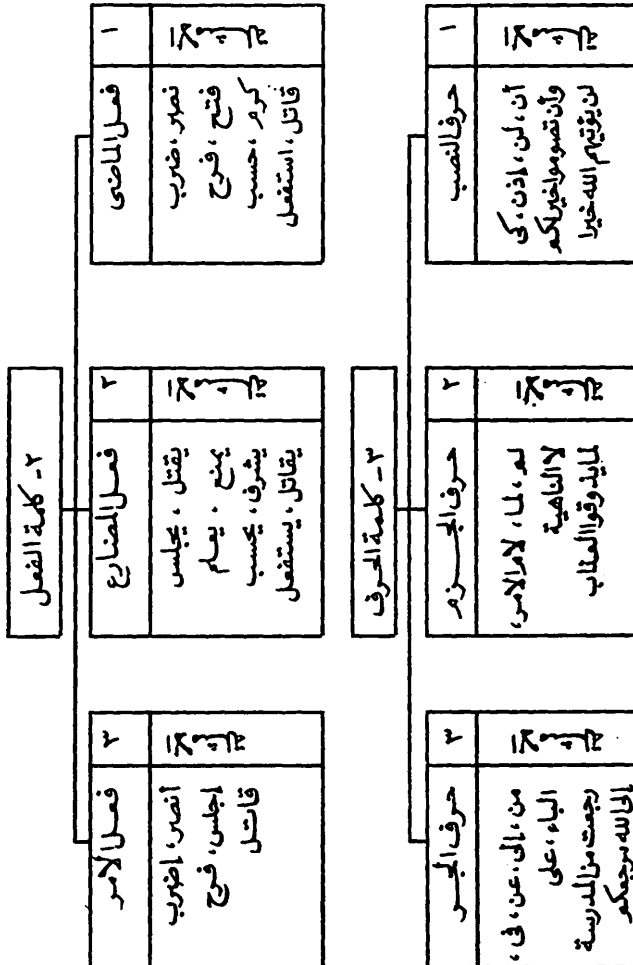 ٢- كلمة الفعل
١ فعل الماضى
نصر، ضرب
فتح، فرح
كرم، حسب
قاتل، استفعل
٢ فعل المضارع
يقتل، يجلس
يمنع، يعلم
يشرف، يحسب
يقاتل، يستفعل
٣ فعل الأمر
أنصر، إضرب
إجلس، فرح
قاتل
٣- كلمة الحرف
١ حرف النصب
أن، لن، إذن، كى
وأن تصوموا خير لكم
لن يؤتيهم الله خيرا
٢ حرف الجزم
لم، لما، لام الامر،
لا الناهية
لما يذوقوا العذاب
٣ حرف الجر
من، إلى، عن، فى،
الباء، على
رجعت من المدرسة
إلى الله مرجعكم